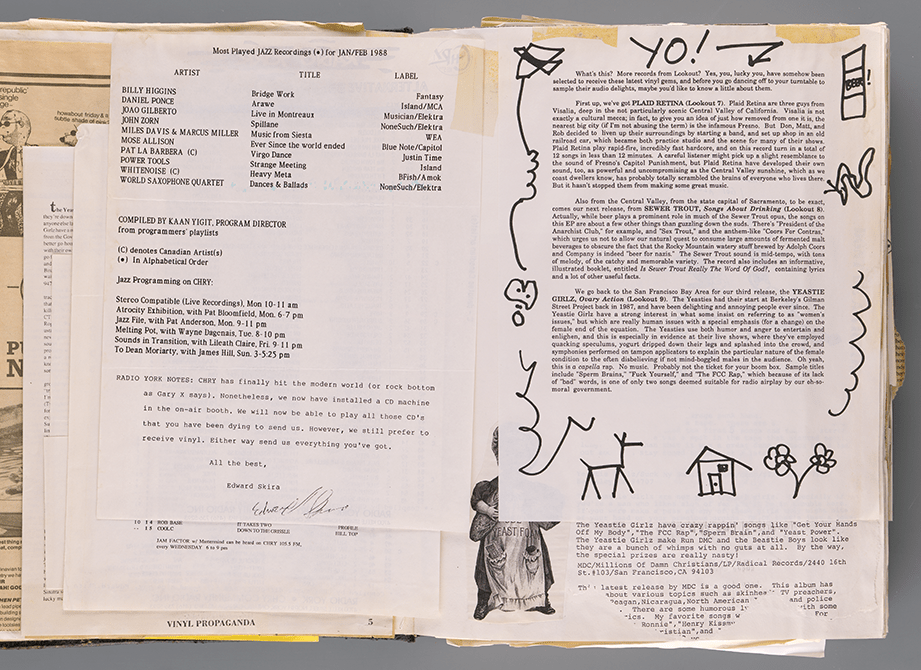 Most Played JAZZ Recordings (•) for JAN/FEB 1988
ARTIST TITLE LABEL
BILLY HIGGINS Bridge Work Fantasy
DANIEL PONCE Arawe Island/MCA
JOAO GILBERTO Live in Montreaux Musician/Elektra
JOHN ZORN Spillane NoneSuch/Elektra
MILES DAVIS & MARCUS MILLER Music from Siesta WEA
MOSE ALLISON Ever Since the world ended Blue Note/Capitol
PAT LA BARBERA (C) Virgo Dance Justin Time
POWER TOOLS Strange Meeting Island
WHITENOISE (C) Heavy Meta BFish/Amok
WORLD SAXOPHONE QUARTET Dances & Ballads NoneSuch/Elektra
COMPILED BY KAAN YIGIT, PROGRAM DIRECTOR
from programmers' playlists
(C) denotes Canadian Artist(s)
(•) In Alphabetical Order
Jazz Programming on CHRY:
Stereo Compatible (Live Recordings), Mon 10-11 am
Atrocity Exhibition, with Pat Bloomfield, Mon. 6-7 pm
Jazz File, with Pat Anderson, Mon. 9-11 pm
Melting Pot, with Wayne Dagenais, Tue. 8-10 pm
Sounds in Transition, with Lileath Claire, Fri. 9-11 pm
To Dean Moriarty, with James Hill, Sun. 3-5:25 pm
RADIO YORK NOTES: CHRY has finally hit the modern world (or rock bottom
as Gary X says). Nonetheless, we now have installed a CD machine
in the on-air booth. We will now be able to play all those CD's
that you have been dying to send us. However, we still prefer to
receive vinyl. Either way send us everything you've got.
All the best,
Edward Skira
10 14 ROB BASE IT TAKES TWO PROFILE
COOL C DOWN TO THE GRISSLE HILL TOP
JAM FACTOR w/ Mastermind can be heard on CHRY 105.5 FM,
every WEDNESDAY 6 to 9 pm
VINYL PROPAGANDA 5
YO!
BEER!
What's this? More records from Lookout? Yes, you, lucky you, have somehow been
selected to receive these latest vinyl gems, and before you go dancing off to your turntable to
sample their audio delights, maybe you'd like to know a little about them.
First up, we've got PLAID RETINA (Lookout 7). Plaid Retina are three guys from
Visalia, deep in the not particularly scenic Central Valley of California. Visalia is not
exactly a cultural mecca; in fact, to give you an idea of just how removed from one it is, the
nearest big city (if I'm not abusing the term) is the infamous Fresno. But Don, Matt, and
Rob decided to liven up their surroundings by starting a band, and set up shop in an old
railroad car, which became both practice studio and the scene for many of their shows.
Plaid Retina play rapid-fire, incredibly fast hardcore, and on this record turn in a total of
12 songs in less than 12 minutes. A careful listener might pick up a slight resemblance to
the sound of Fresno's Capitol Punishment, but Plaid Retina have developed their own
sound, too, as powerful and uncompromising as the Central Valley sunshine, which as we
coast dwellers know, has probably totally scrambled the brains of everyone who lives there.
But it hasn't stopped them from making some great music.
Also from the Central Valley, from the state capital of Sacramento, to be exact,
comes our next release, from SEWER TROUT, Songs About Drinking (Lookout 8).
Actually, while beer plays a prominent role in much of the Sewer Trout opus, the songs on
this EP are about a few other things than guzzling down the suds. There's "President of the
Anarchist Club," for example, and "Sex Trout," and the anthem-like "Coors For Contras,"
which urges us not to allow our natural quest to consume large amounts of fermented malt
beverages to obscure the fact that the Rocky Mountain watery stuff brewed by Adolph Coors
and Company is indeed "beer for fascists." The Sewer Trout sound is mid-tempo, with tons
of melody, of the catchy and memorable variety. The record also includes an informative,
illustrated booklet, entitled Is Sewer Trout Really The Word Of God?, containing lyrics
and a lot of other useful facts.
We go back to the San Francisco Bay Area for our third release, the YEASTIE
GIRLZ, Ovary Action (Lookout 9). The Yeasties had their start at Berkeley's Gilman
Street Project back in 1987, and have been delighting and annoying people ever since. The
Yeastie Girlz have a strong interest in what some insist on referring to as "women's
issues," but which are really human issues with a special emphasis (for a change) on the
female end of the equation. The Yeasties use both humor and anger to entertain and
enlighten, and this is especially in evidence at their live shows, where they've employed
quacking speculums, yogurt dripped down their legs and splashed into the crowd, and
symphonies performed on tampon applicators to explain the particular nature of the female
condition to the often disbelieving if not mind-boggled males in the audience. Oh yeah,
this is a capella rap. No music. Probably not the ticket for your boom box. Sample titles
include "Sperm Brains," "Fuck Yourself," and "The FCC Rap," which because of its lack
of "bad" words, is one of only two songs deemed suitable for radio airplay by our oh-so-
moral government.
The Yeastie Girlz have crazy rappin' songs like "Get Your Hands
Off My Body","The FCC Rap","Sperm Brain",and "Yeast Power".
The Yeastie Girlz make Run DMC and the Beastie Boys look like
they are a bunch of whimps with no guts at all. By the way,
the special prizes are really nasty!
MDC/Millions Of Damn Christians/LP/Radical Records/2440 16th
St.#103/San Francisco,CA 94103
latest release by MDC is a good one. This album has
about various topics such as TV preachers,
Reagan,Nicaragua,North American and police
There are some humorous with some
My favorite songs For
Ronnie","Henry
and "